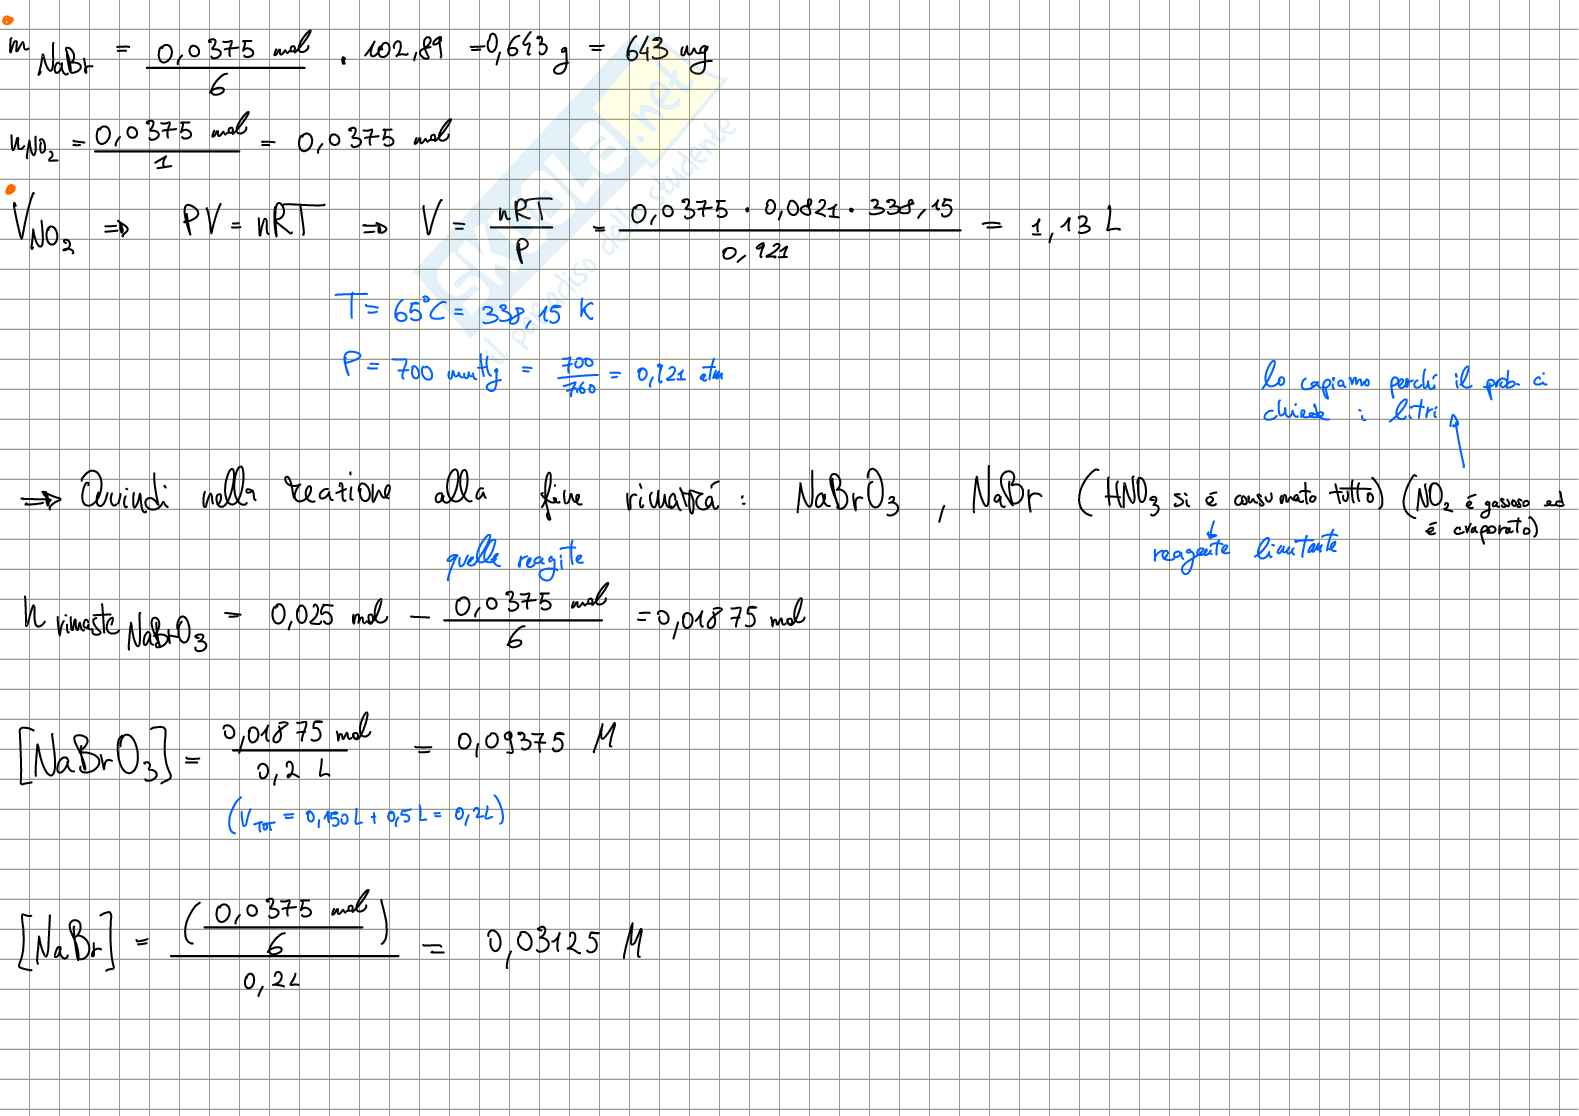 m NaBr = 0,0375 mol / 6 · 102,89 = 0,643 g = 643 mg
n NO2 = 0,0375 mol / 1 = 0,0375 mol
V NO2 ⇒ PV = nRT ⇒ V = nRT / P = 0,0375 · 0,0821 · 338,15 / 0,921 = 1,13 L
T = 65°C = 338,15 K
P = 700 mmHg = 700 / 760 = 0,921 atm
lo capiamo perché il prob ci
chiede i litri
⇒ Quindi nella reazione alla fine rimarrá : NaBrO3 , NaBr (HNO3 si é consumato tutto) (NO2 é gassoso ed
é evaporato)
reagente limitante
quelle reagite
n rimaste NaBrO3 = 0,025 mol − 0,0375 mol / 6 = 0,01875 mol
[NaBrO3] = 0,01875 mol / 0,2 L = 0,09375 M
(V TOT = 0,150 L + 0,5 L = 0,2 L)
[NaBr] = (0,0375 mol / 6) / 0,2 L = 0,03125 M
skuola.net
il paradiso dello studente